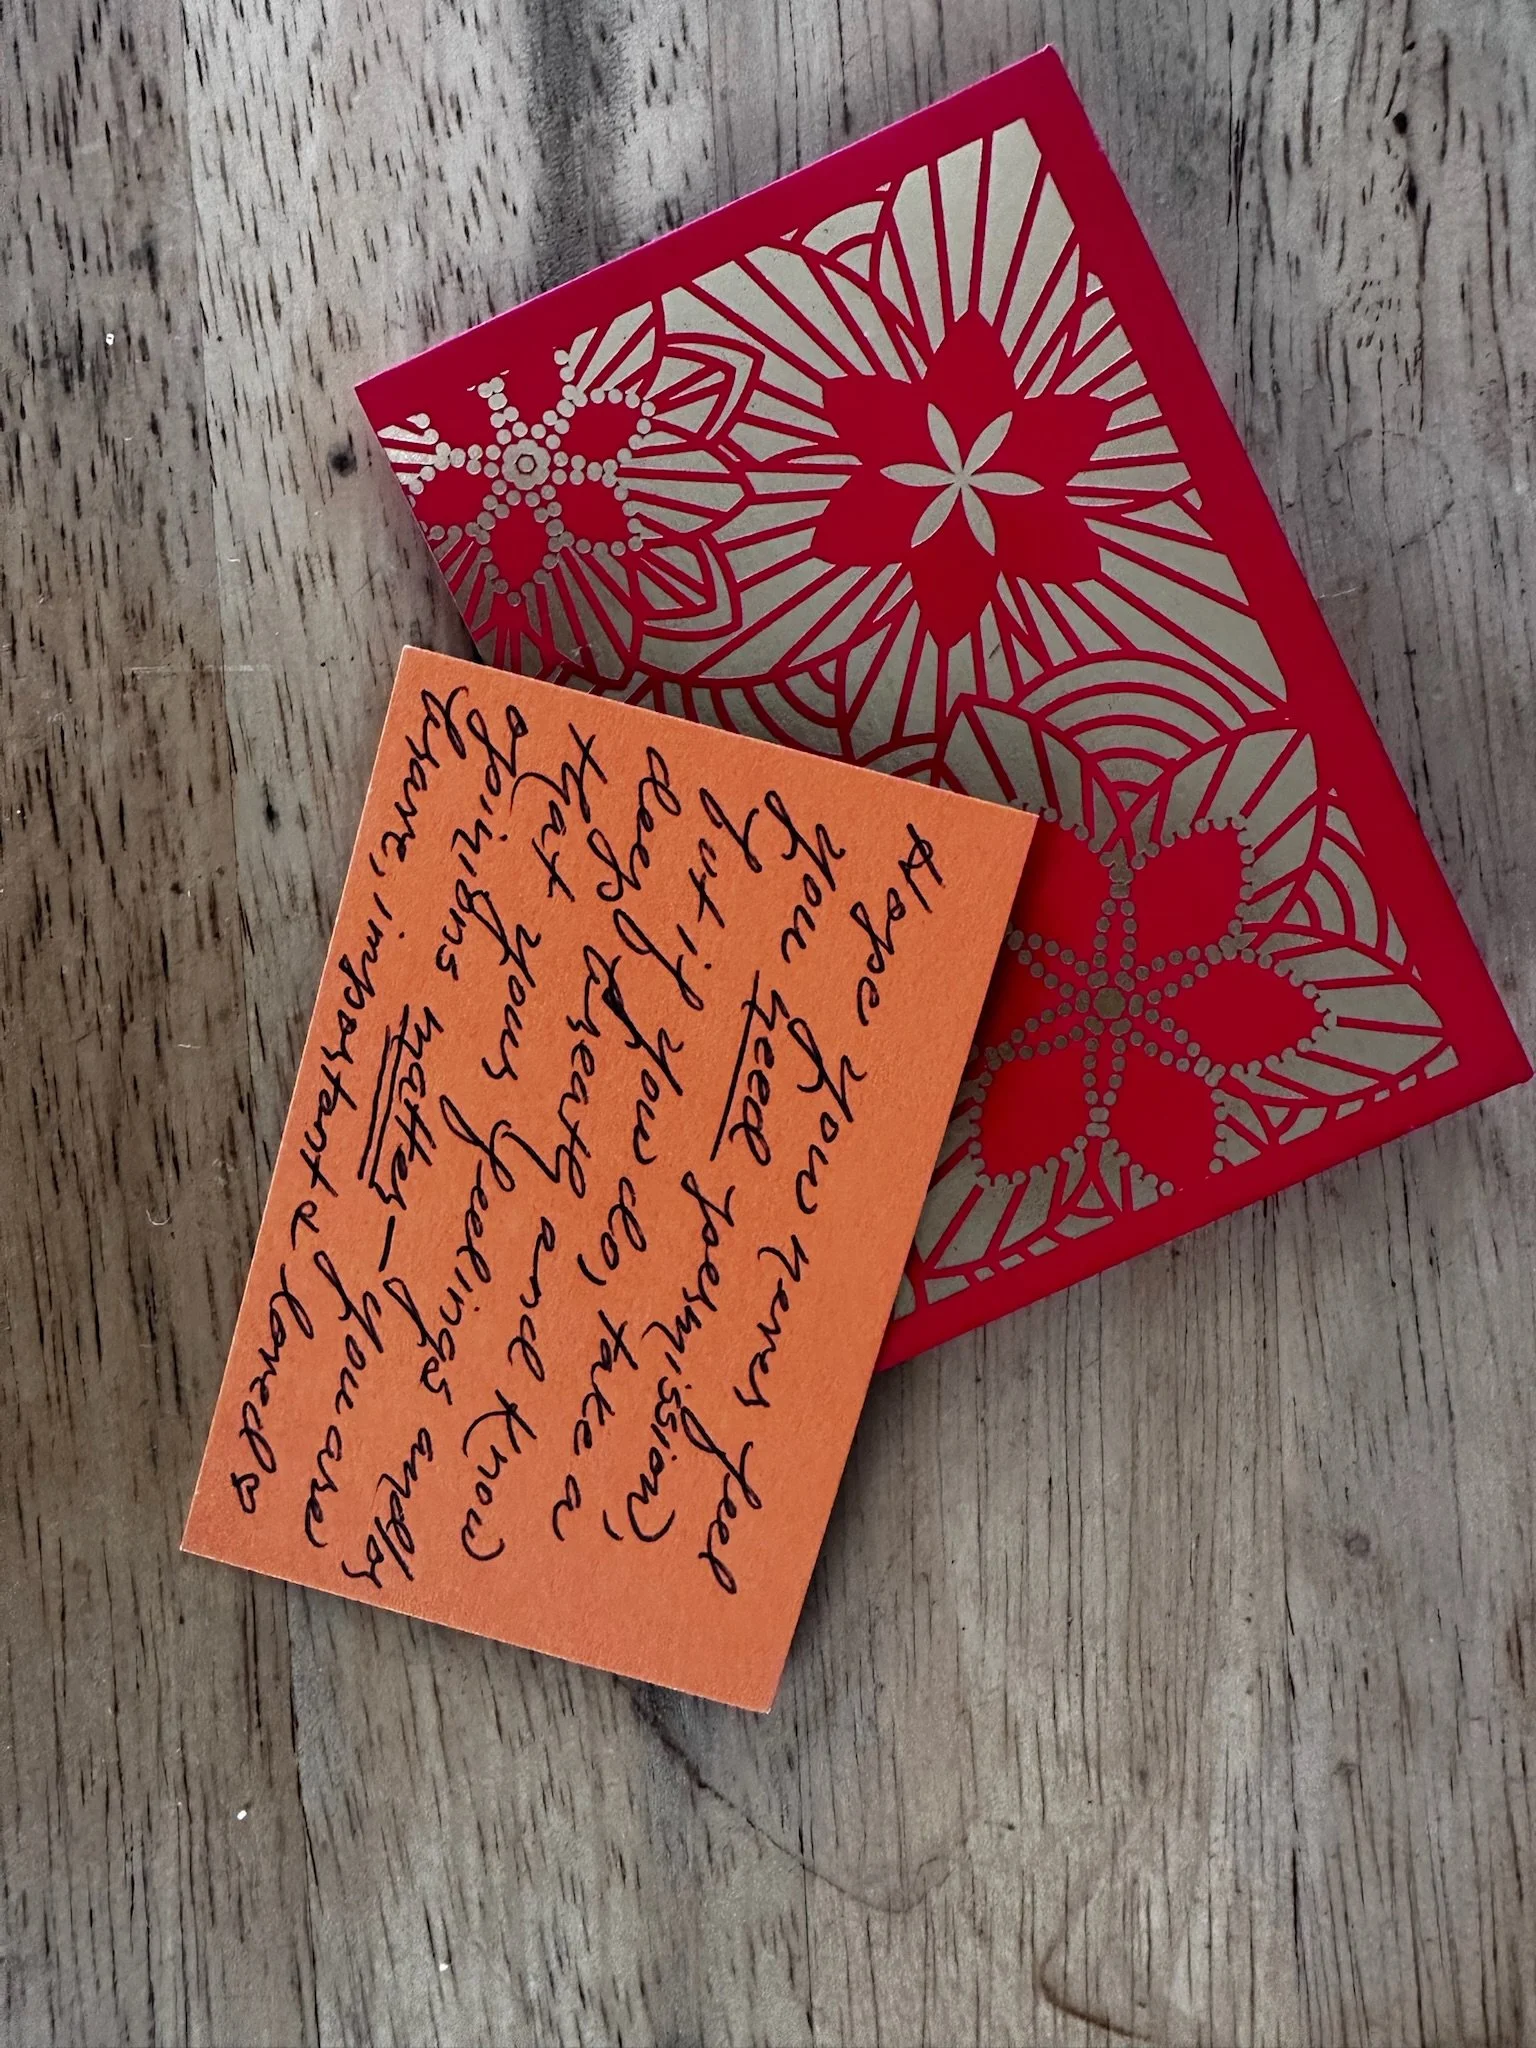 Hope you never feel
you need permission,
but if you do, take a
deep breath and know
that your feelings and/or
opinions matter - you are
brave, important & loved ♡